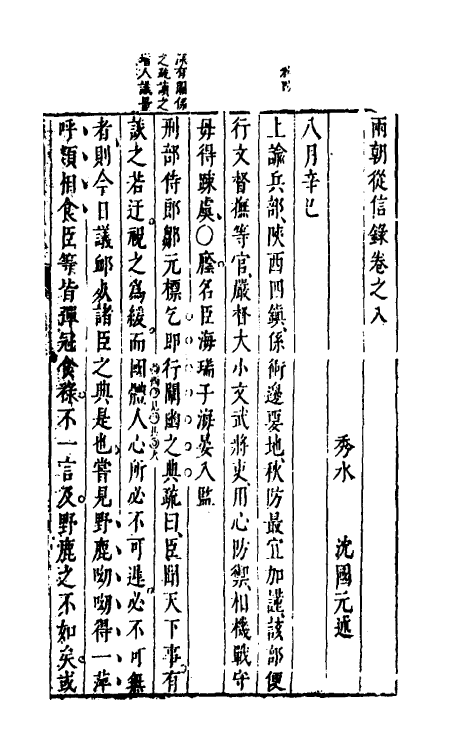 兩朝從信錄卷之八
秀水 沈國元述
八月辛巳
上諭兵部、陝西四鎮、係衝邊要地、秋防最宜加謹、該部便
行文督撫等官、嚴督大小文武將吏用心防禦、相機戰守
毋得踈虞、○廕名臣海瑞子海晏入監
刑部侍郎鄒元標乞即行闡幽之典疏曰、臣聞天下事、有
談之若迂、視之為緩、而國體人心所必不可遲、必不可無
者、則今日議䘏諸臣之典是也、嘗見野鹿呦呦得一苹
呼類相食、臣等皆彈冠食祿、不一言及、野鹿之不如矣、或
深有關係
之疏讀之
增人議量